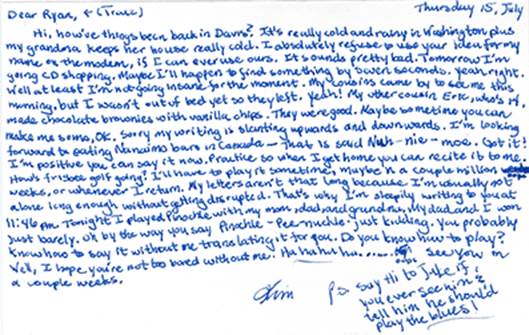 Dear Ryan, ← (Trace) Thursday 15, July
Hi, how've things been back in Davis? It's really cold and rainy in Washington plus
my grandma keeps her house really cold. I absolutely refuse to use your idea for my
name on the modem, if I can ever use ours. It sounds pretty bad. Tomorrow I'm
going CD shopping. Maybe I'll happen to find something by Seven Seconds. yeah right.
Well at least I'm not going insane for the moment. My cousins came by to see me this
morning, but I wasn't out of bed yet so they left. Yeah! My other cousin Eric, who's 14,
made chocolate brownies with vanilla chips. They were good. Maybe sometime you can
make me some, OK. Sorry my writing is slanting upwards and downwards. I'm looking
forward to eating Nanaimo bars in Canada — That is said Nuh-nie-moe. Got it!
I'm positive you can say it now. Practice so when I get home you can recite it to me.
How's frisbee golf going? I'll have to play it sometime, maybe in a couple million
weeks, or whenever I return. My letters aren't that long because I'm usually not
alone long enough without getting disrupted. That's why I'm sleepily writing to you at
11:46 pm. Tonight I played Pinochle with my mom, dad, and grandma. My dad and I won
just barely. Oh by the way you say Pinochle - Pee-nuckle. Just kidding, you probably
know how to say it without me translating it for you. Do you know how to play?
Well, I hope you're not too bored without me. Ha ha ha ha...... See you in
a couple weeks.
P.S. Say Hi to Jake if
you ever see him &
tell him he should
play the blues!